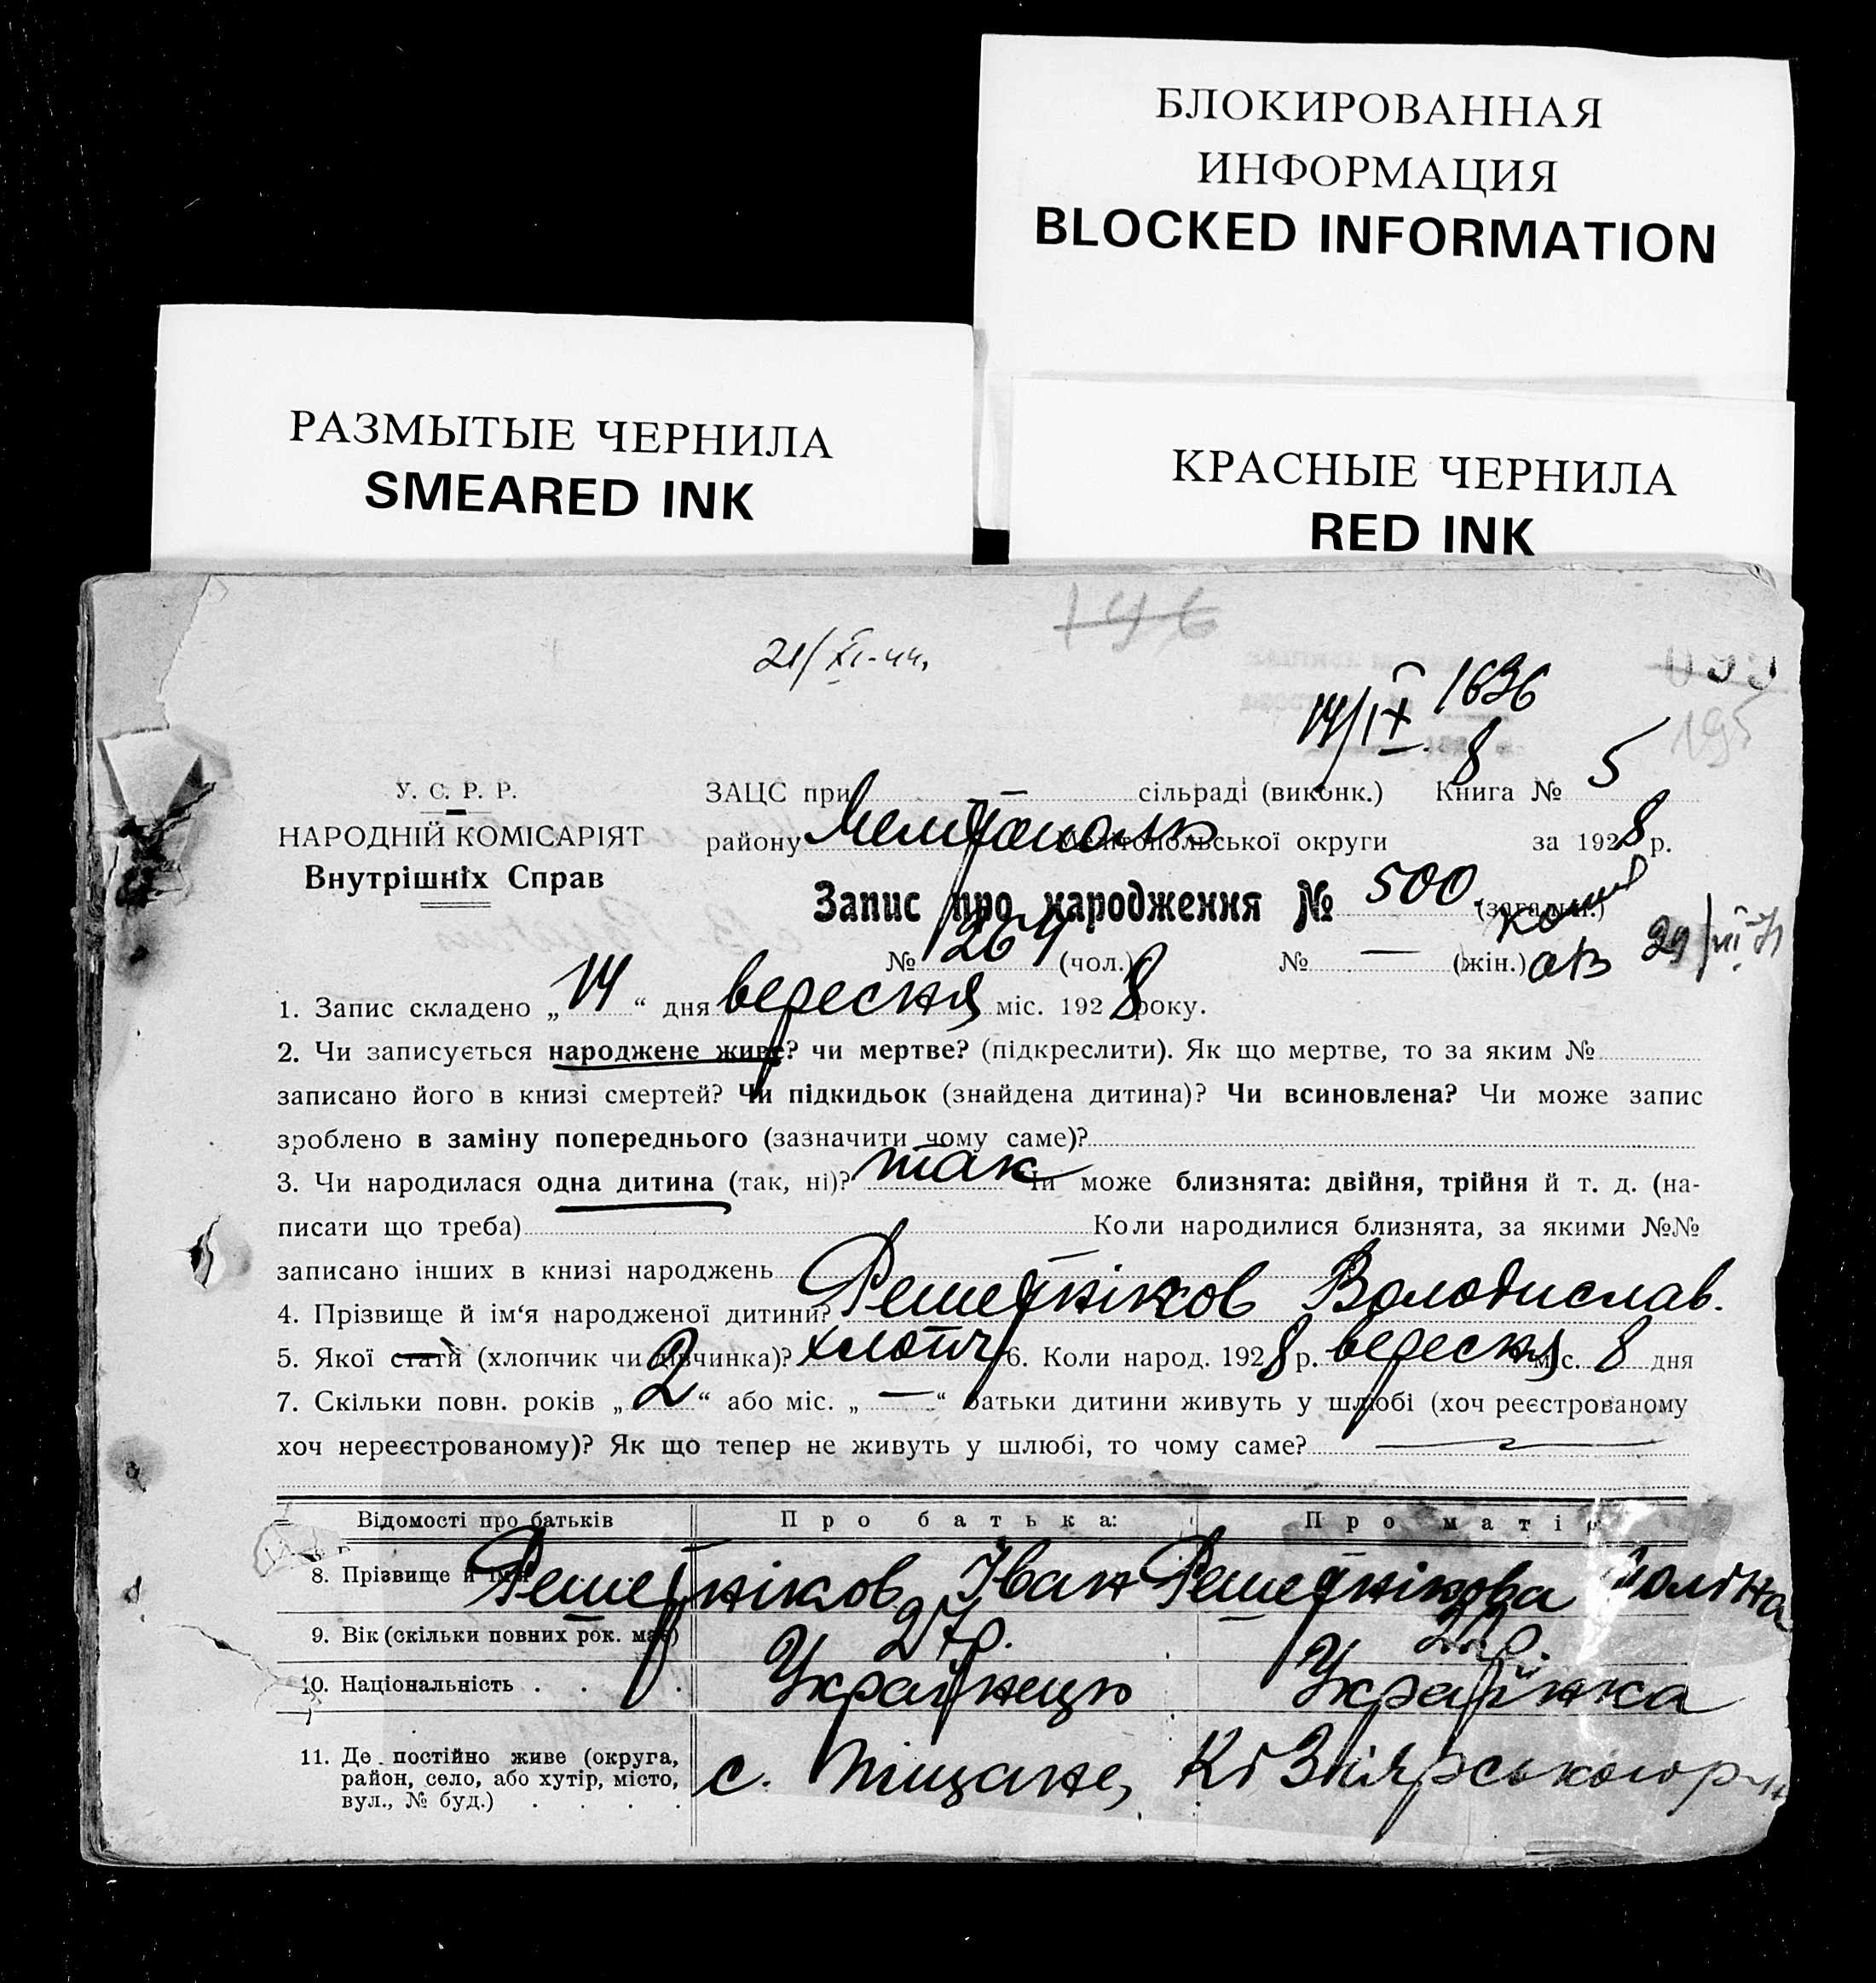 БЛОКИРОВАННАЯ
ИНФОРМАЦИЯ
BLOCKED INFORMATION
РАЗМЫТЫЕ ЧЕРНИЛА
SMEARED INK
КРАСНЫЕ ЧЕРНИЛА
RED INK
146
21/XI-44.
14/IX 1636
8
195
У. С. Р. Р.
НАРОДНІЙ КОМІСАРІЯТ
Внутрішніх Справ
ЗАЦС при — сільраді (виконк.) Книга № 5
району Мелітополь Мелітопольської округи за 1928 р.
Запис про народження № 500 (загальн.)
№ 264 (чол.) № — (жін.)
29/VI
1. Запис складено „14“ дня вересня міс. 1928 року.
2. Чи записується народжене живе? чи мертве? (підкреслити). Як що мертве, то за яким №
записано його в книзі смертей? Чи підкидьок (знайдена дитина)? Чи всиновлена? Чи може запис
зроблено в заміну попереднього (зазначити чому саме)?
3. Чи народилася одна дитина (так, ні)? так Чи може близнята: двійня, трійня й т. д. (на-
писати що треба) Коли народилися близнята, за якими №№
записано інших в книзі народжень —
4. Прізвище й ім'я народженої дитини? Решетніков Володислав.
5. Якої статі (хлопчик чи дівчинка)? хлопч 6. Коли народ. 1928 р. вересня міс. 8 дня
7. Скільки повн. років „2“ або міс. „—“ батьки дитини живуть у шлюбі (хоч реєстрованому
хоч нереєстрованому)? Як що тепер не живуть у шлюбі, то чому саме? —
Відомості про батьків Про батька: Про матір
8. Прізвище й ім'я Решетніков Іван Решетнікова
9. Вік (скільки повних рок. має) 27 р.
10. Національність . . . Українець Українка
11. Де постійно живе (округа,
район, село, або хутір, місто,
вул., № буд.) . . . .
с. Піщане, Кізіярського р-н